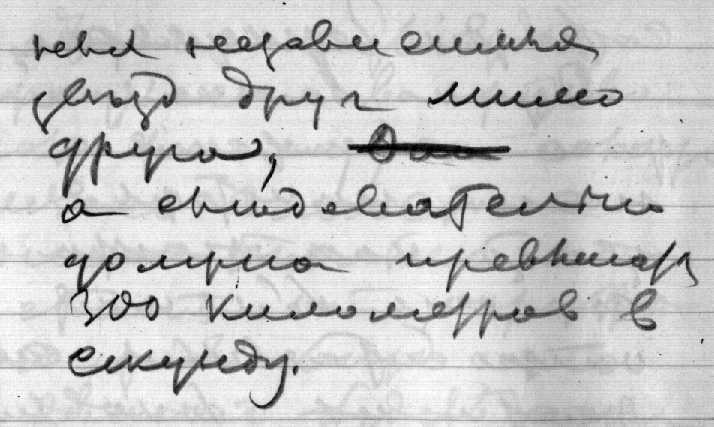 ния независимых
звезд друг мимо
друга,
а следовательно
должна превышать
300 километров в
секунду.